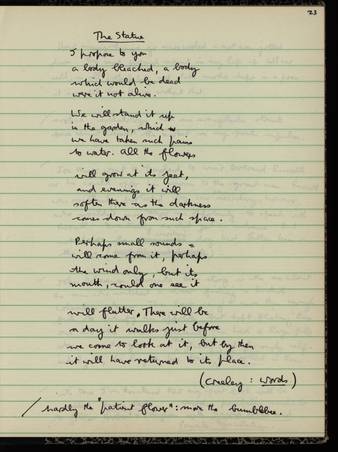 23
The Statue
I propose to you
a body bleached, a body
which would be dead
were it not alive.
We will stand it up
in the garden, which
we have taken such pains
to water. All the flowers
will grow at its feet,
and evenings it will
soften there as the darkness
comes down from such space.
Perhaps small sounds
will come from it, perhaps
the wind only, but its
mouth, could one see it
will flutter. There will be
a day it walks just before
we come to look at it, but by then
it will have returned to its place.
(Creeley : Words)
/ hardly the "patient flower": more the bumblebee.